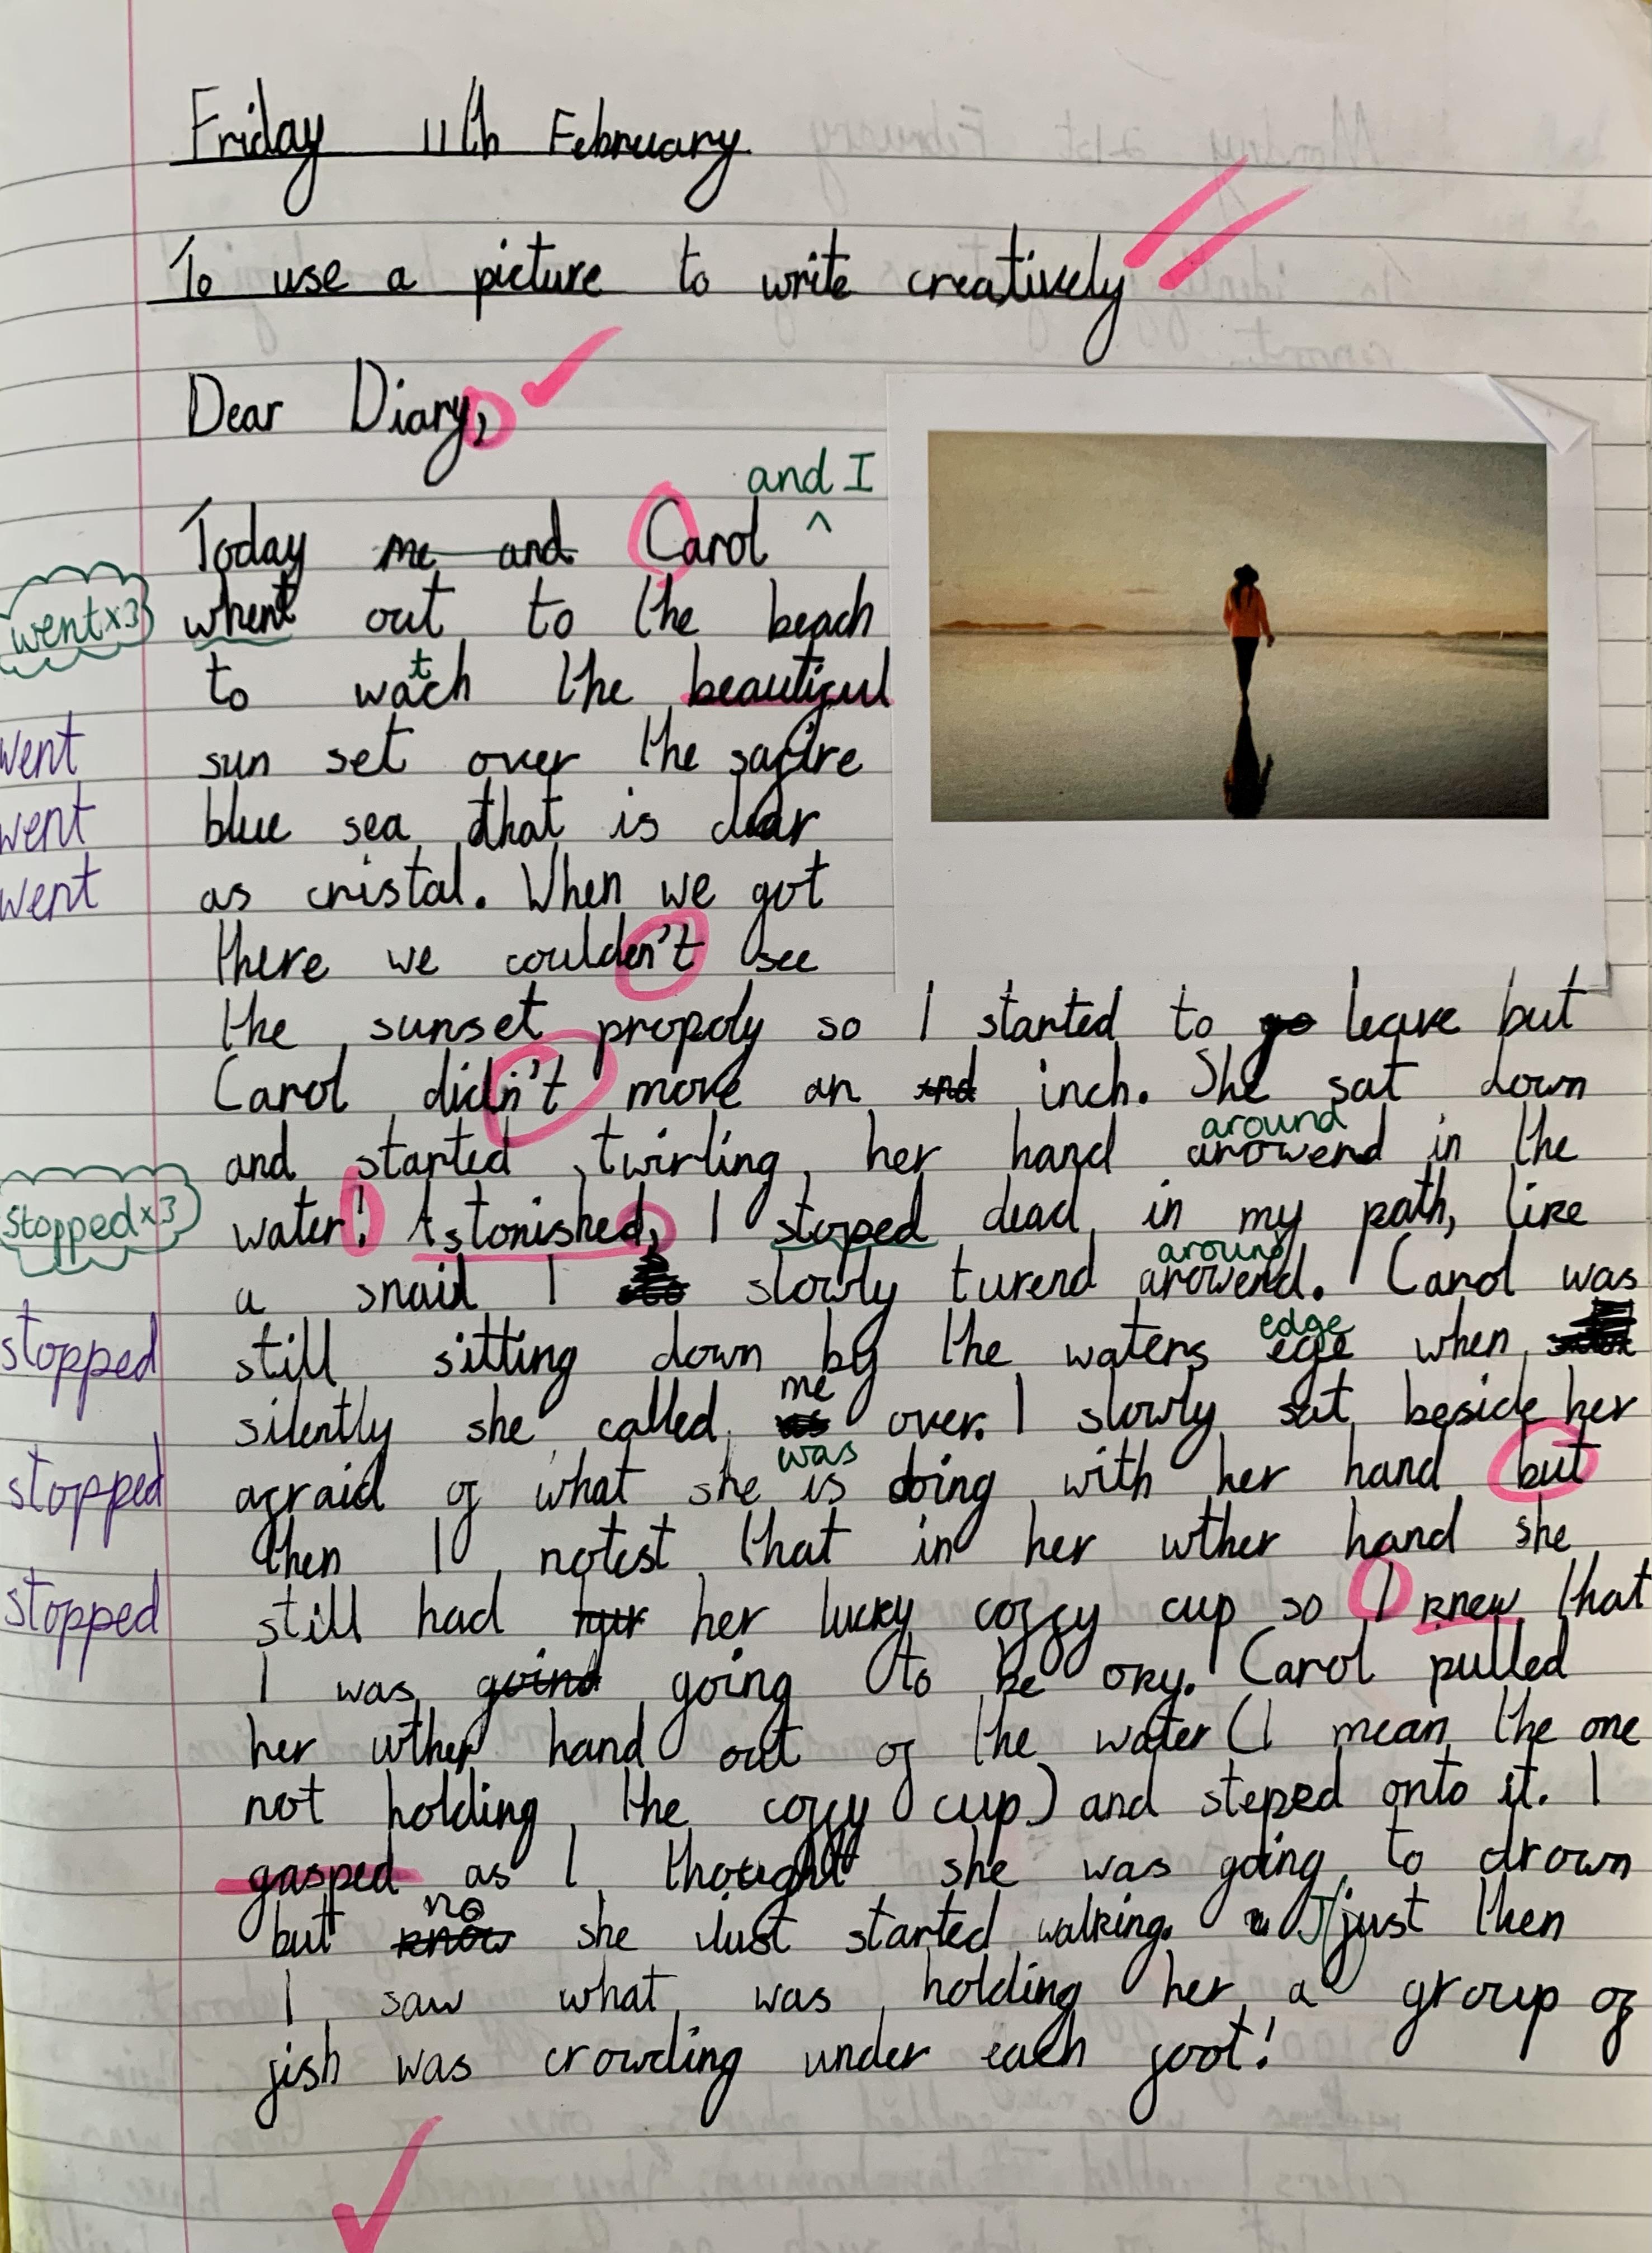 Friday 11th February
To use a picture to write creatively
Dear Diary,
and I
Today me and Carol ^
went x3 whent out to the beach
t
to wach the beautiful
went sun set over the safire
went blue sea that is clear
went as cristal. When we got
there we coulden't see
the sunset propoly so I started to go leave but
Carol didn't move an and inch. She sat down
around
and started twirling her hand arowend in the
stopped x3 water! Astonished, I stoped dead in my path, like
around
a snail I slowly turend arowend. Carol was
edge
stopped still sitting down by the waters ege when
me
silently she called over. I slowly sat beside her
was
stopped afraid of what she is doing with her hand but
then I notest that in her wther hand she
stopped still had her lucky coffy cup so I knew that
I was goind going to be oky. Carol pulled
her wther hand out of the water (I mean the one
not holding the coffy cup) and steped onto it. I
gasped as I thought she was going to drown
no
but know she Just started walking. Just then
I saw what was holding her a group of
fish was crowding under each foot!